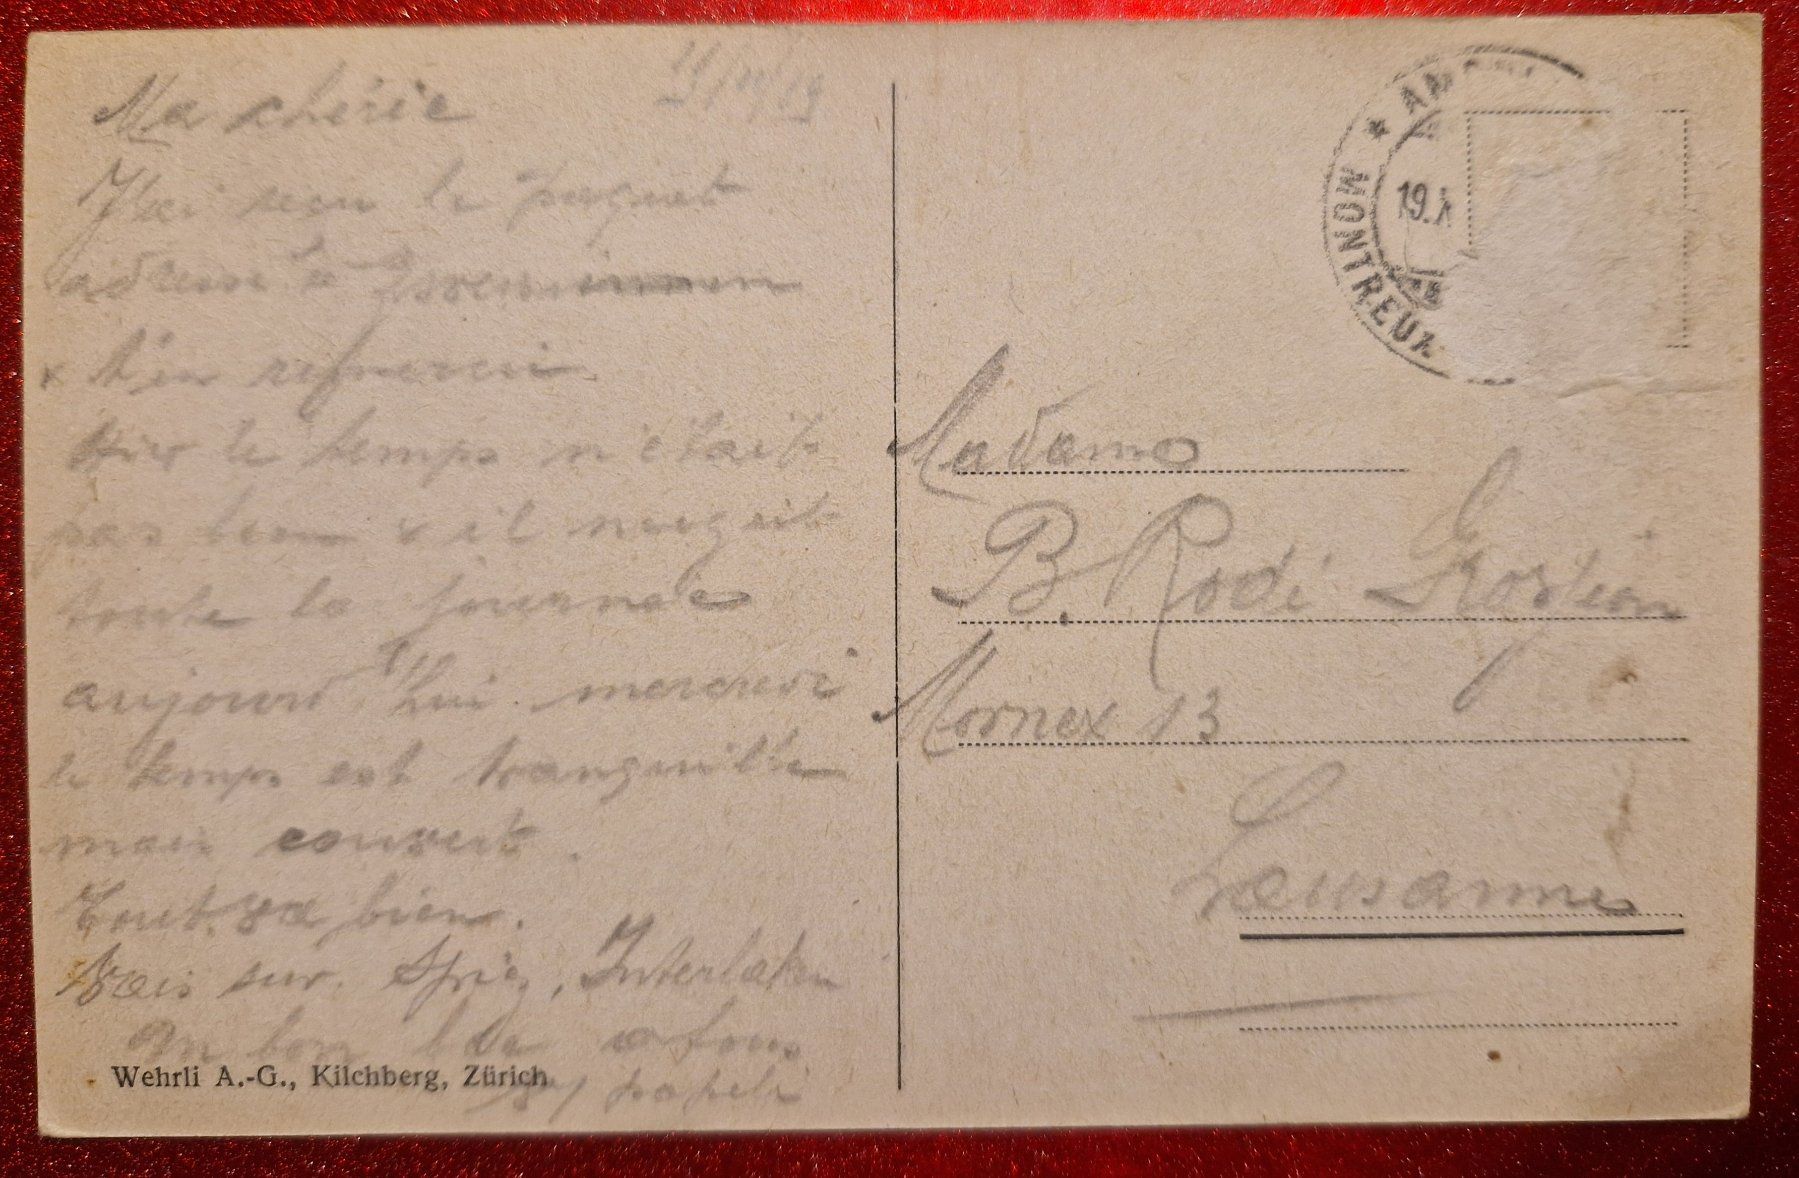 Ma chérie
J'ai reçu le paquet
adressé à
& t'en remerci
Hier le temps n'était
pas beau & il neigeait
toute la journée
aujourd'hui mercredi
le temps est tranquille
mais couvert.
Tout va bien.
Vais sur. Spiez, Interlaken
Un bon à tous
papeli
Wehrli A.-G., Kilchberg, Zürich
* AMB
19.X
MONTREUX
Madame
B. Rodi
Mornex 13
Lausanne